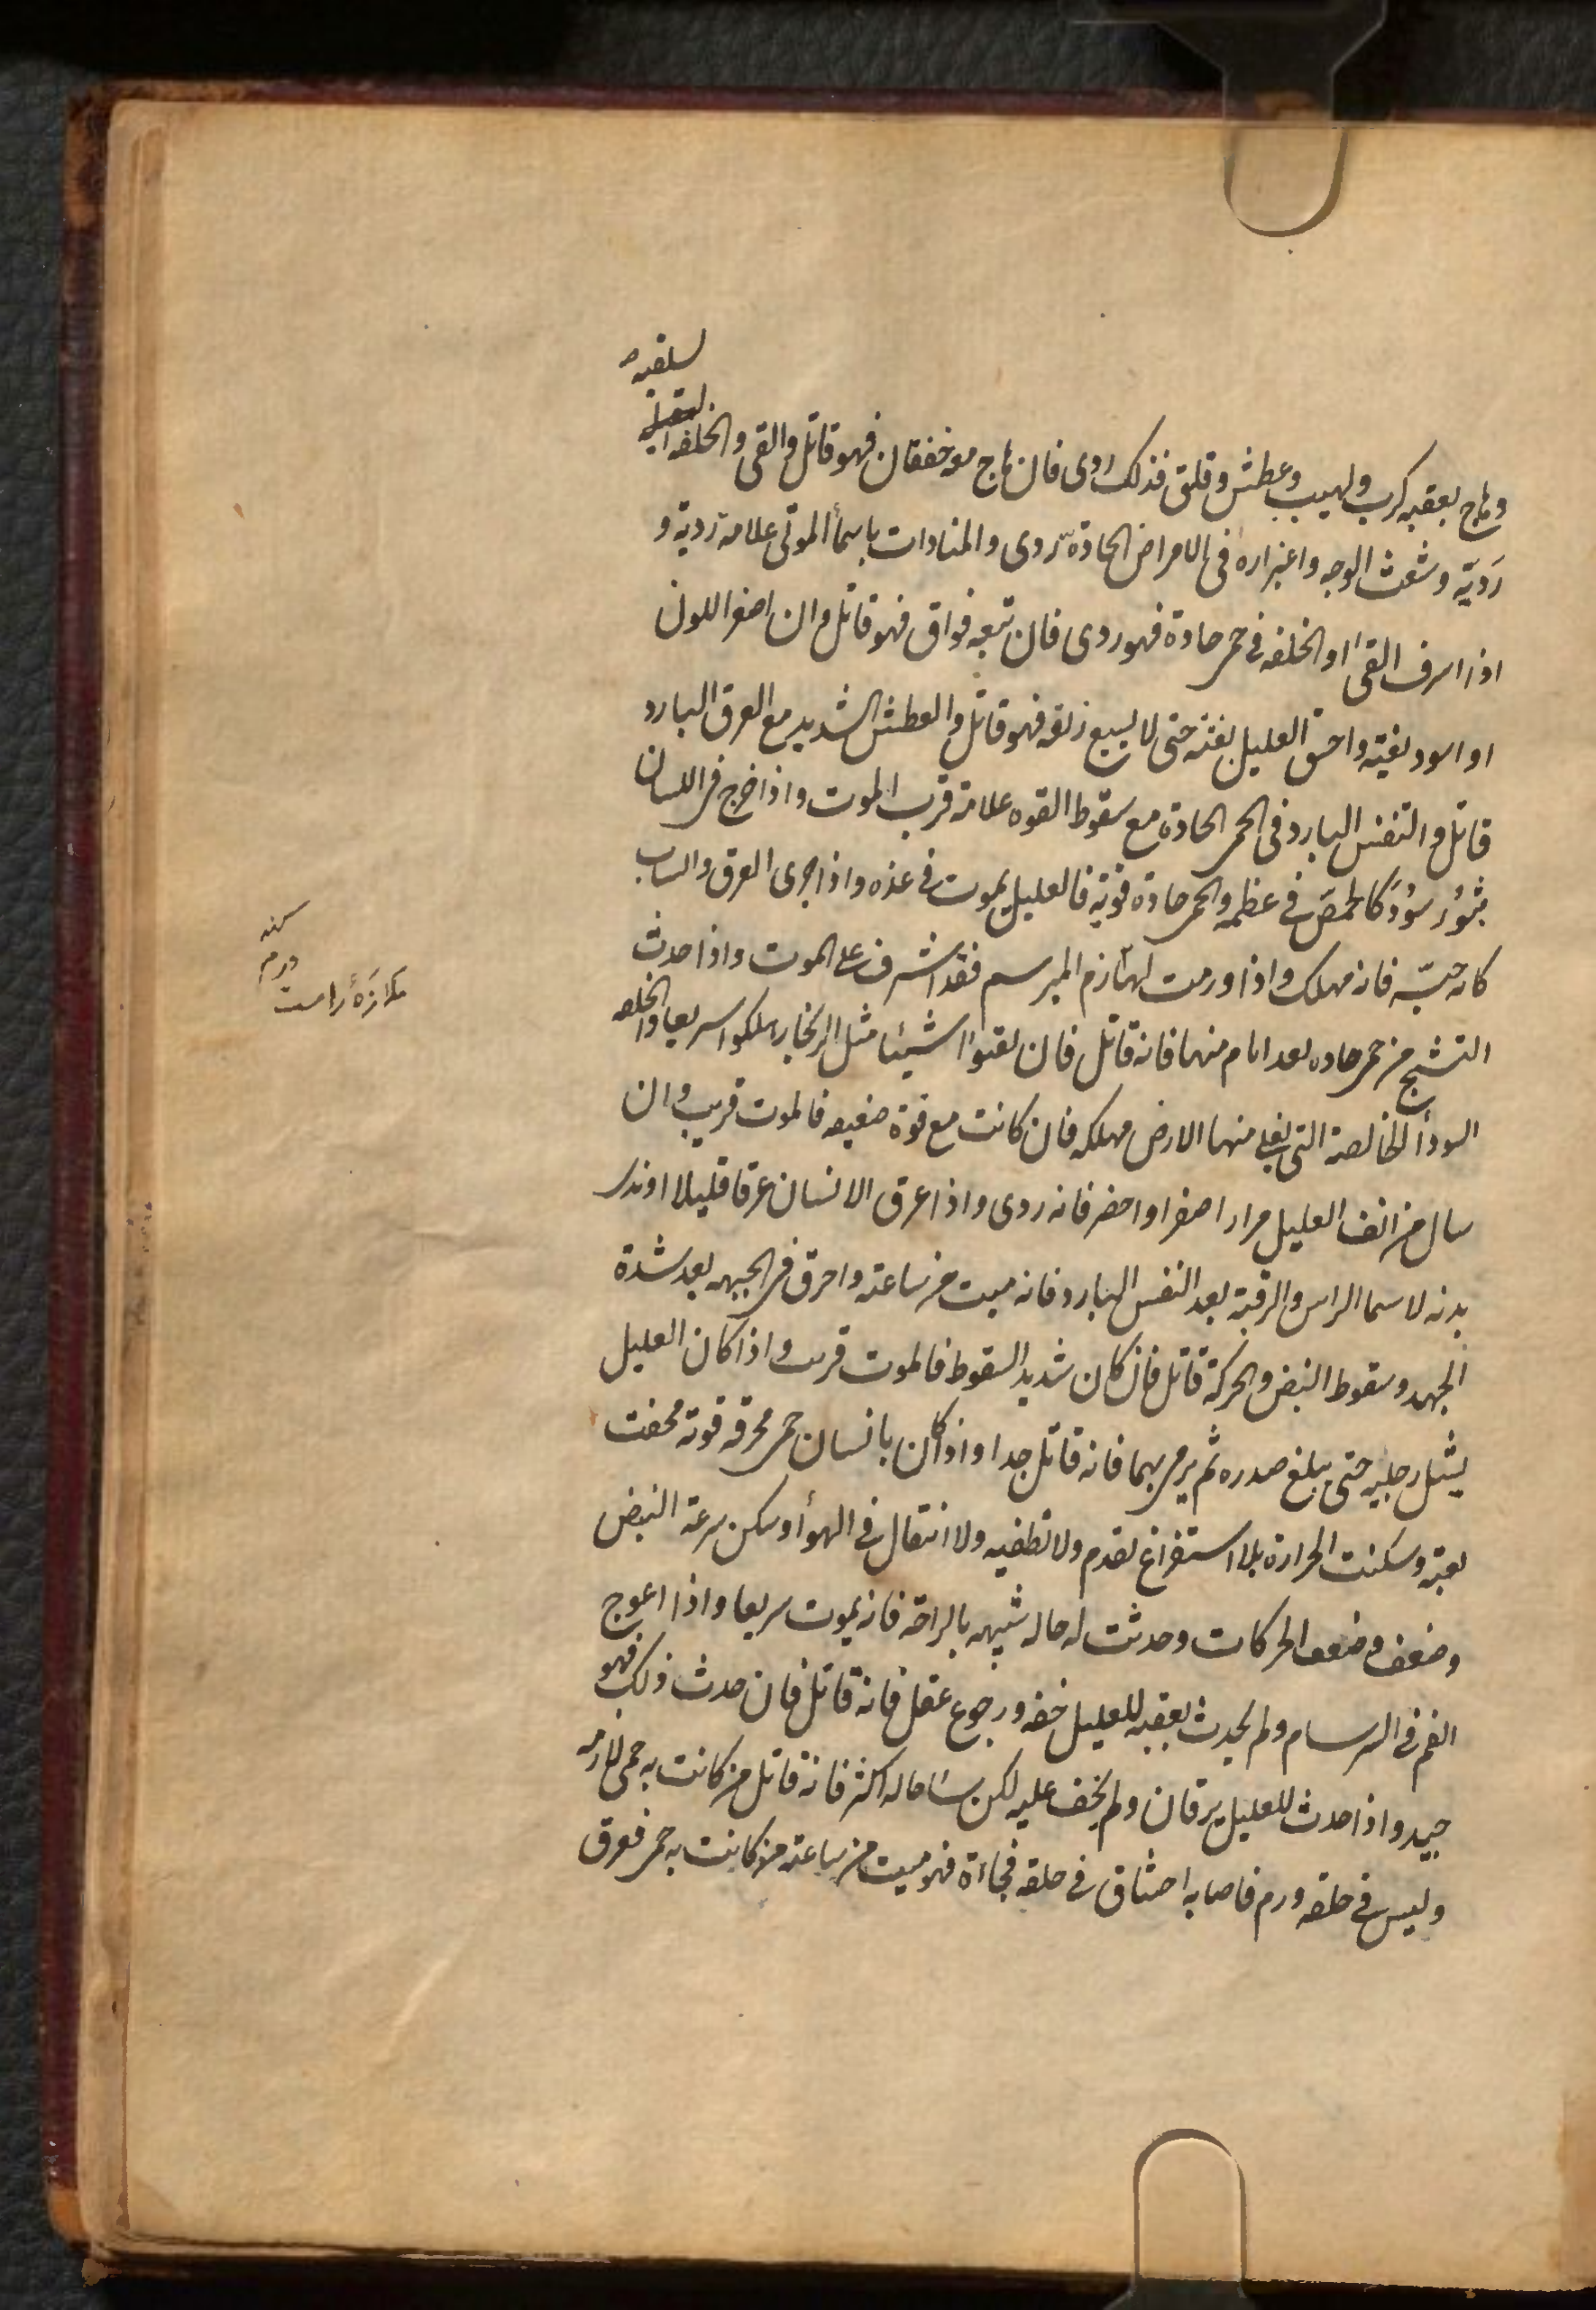 لسلقيه
وهاج بعقبه كرب ولهيب وعطش وقلق فذلك ردى فان هاج معه خفقان فهو قاتل والقى والخلفه
رَديّه وشعث الوجه واغبراره فى الامراض الحادة ردى والمنادات باسمأ الموتى علامة رديه و
اذا اسرف القىٔ او الخلفه فى حمر حادة فهو ردى فان تتبعه فواق فهو قاتل وان اصفر اللون
او اسود بغيته واختنق العليل بغتة حتى لا يسيع ريقه فهو قاتل والعطش الشديد مع العرق البارد
قاتل والتنفس البارد فى الحمر الحادة مع سقوط القوه علامة قرب الموت واذا خرج فى اللسان
بثورٌ سُودٌ كالحمصّ فى عظمه والحمر حادة قويه فالعليل يموت فى غده واذا جرى العرق والساب
كانه حبّه فانه مهلك واذا ورمت لهازم المبرسم فقد اشرف على الموت واذا حدث
التشنج من حمر حاده بعد ايام منها فانه قاتل فان لقيوا شيئا مثل الزنجار هلكوا سريعا والخلفه
السودأ الخالصة التى يغلى منها الارض مهلكه فان كانت مع قوة ضعيفه فالموت قريب وان
سال من انف العليل مرار اصفر او اخضر فانه ردى واذا عرق الانسان عرقا قليلا او ندى
بدنه لا سيما الراس والرقبة بعد النفس البارد فانه ميت من ساعته واحرق فى الجبهه بعد شدة
الجهد وسقوط النبض والحركة قاتل فان كان شديد السقوط فالموت قريب واذا كان العليل
يشيل رجليه حتى يبلغ صدره ثم يرمى بهما فانه قاتل جدا واذا كان بانسان حمر محرقه قويه فخفت
بغتة وسكنت الحرارة بلا استفراغ تقدم ولا تطفيه ولا انتقال فى الهوأ وسكن سرعة النبض
وضعف وضعف الحركات وحدثت له حاله شبيهه بالراحة فانه يموت سريعا واذا اعوج
الفم فى السرسام ولم يحدث بعقبه للعليل خفه ورجوع عقل فانه قاتل فان حدث ذلك فهو
جيد واذا حدث للعليل يرقان ولم يخف عليه لكن سأ حاله اكثر فانه قاتل من كانت به حمى لازمه
وليس فى حلقه ورم فاصابه اختناق فى حلقه فجأة فهو ميت من ساعته من كانت به حمر فعرق
ورم
ملازَهٔ راست